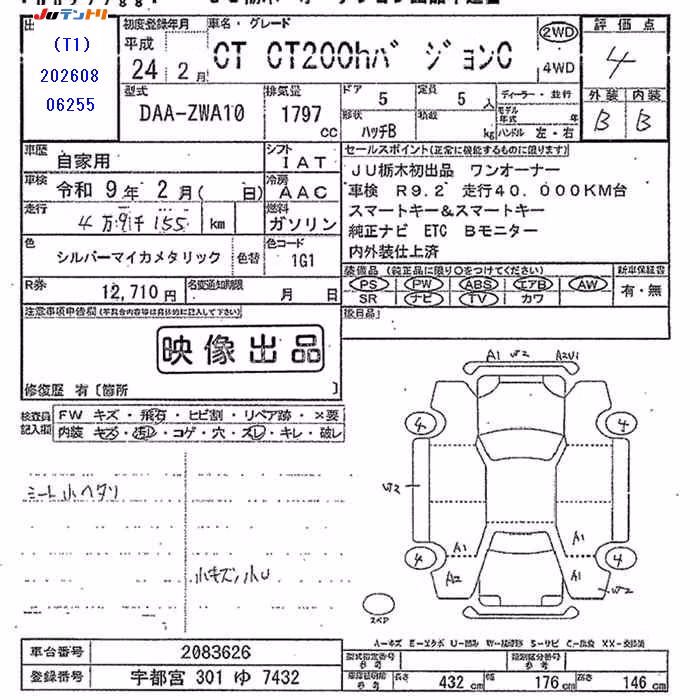 JUテントリ
出
(T1)
202608
06255
初度登録年月
平成
24年2月
車名・グレード
CT CT200hバージョンC
2WD
4WD
評価点
4
外装 内装
B B
型式
DAA-ZWA10
排気量
1797
cc
ドア
5
定員
5人
形状
ハッチB
積載
kg
ディーラー・並行
モデル年式 年
ハンドル 左・右
車歴
自家用
シフト
IAT
車検
令和 9年 2月( 日)
冷房
AAC
走行
4万9千155 km
燃料
ガソリン
色
シルバーマイカメタリック
色替
色コード
1G1
R券
12,710円
名変通知期限
月 日
セールスポイント(正常に機能するものに限ります)
JU栃木初出品 ワンオーナー
車検 R9.2 走行40.000KM台
スマートキー&スマートキー
純正ナビ ETC Bモニター
内外装仕上済
装備品(純正品に限り〇をつけてください)
新車保証書
PS PW ABS エアB AW
有・無
SR ナビ TV カワ
後日品
注意事項申告欄
映像出品
修復歴 有〔箇所 〕
検査員記入欄
FW キズ・飛石・ヒビ割・リペア跡・×要
内装 キズ・汚レ・コゲ・穴・スレ・キレ・破レ
シート小ヘタリ
小キズ、小U
A1 W2 A2U1
4 4
W2
A1 A1
4 4
A2 A1 W2
スペア
A-キズ E-エクボ U-凹み W-補修跡 S-サビ C-腐食 XX-交換済
車台番号
2083626
登録番号
宇都宮 301 ゆ 7432
型式指定番号 参考
類別区分番号 参考
長さ 432 cm
幅 176 cm
高さ 146 cm